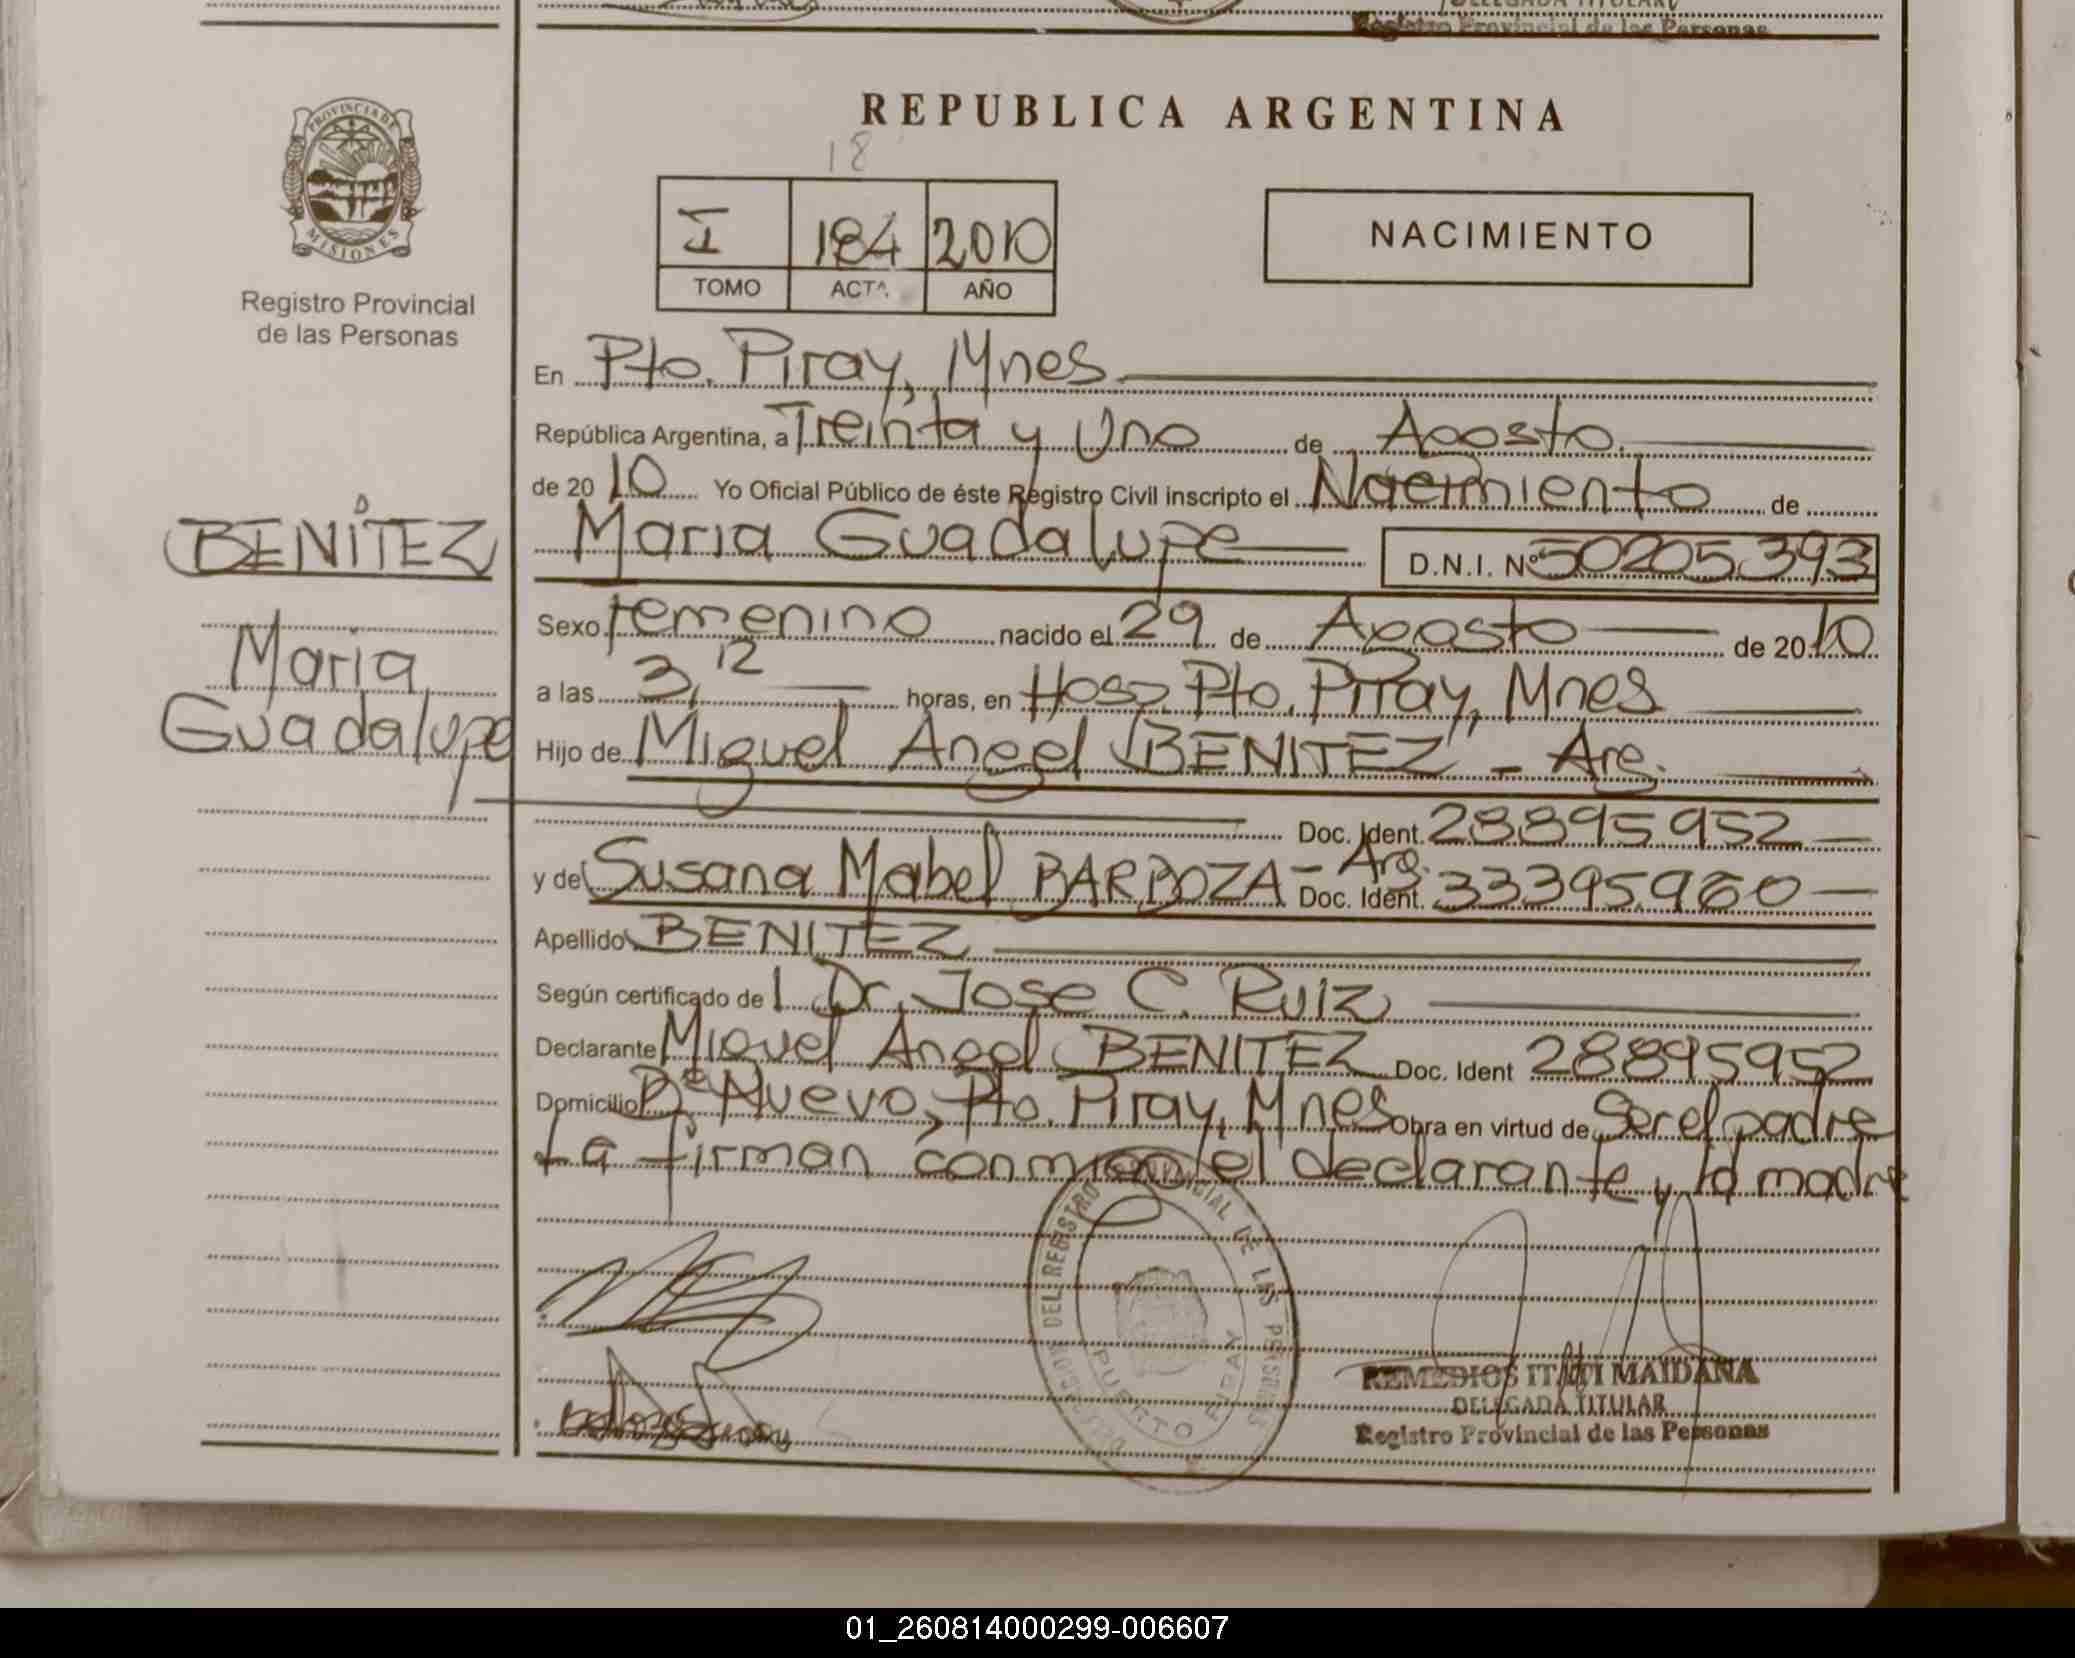 DELEGADA TITULAR
Registro Provincial de las Personas
PROVINCIA DE
MISIONES
Registro Provincial
de las Personas
REPUBLICA ARGENTINA
18
I 184 2010
TOMO ACTA AÑO
NACIMIENTO
En Pto. Piray, Mnes
República Argentina, a Treinta y Uno de Agosto.
de 20 10 Yo Oficial Público de éste Registro Civil inscripto el Nacimiento de
BENITEZ
Maria Guadalupe
D.N.I. Nº 50205.393
Maria
Guadalupe
Sexo femenino nacido el 29 de Agosto de 20 10
a las 3,12 horas, en Hosp. Pto. Piray, Mnes
Hijo de Miguel Angel BENITEZ - Arg.
Doc. Ident. 28895.952
y de Susana Mabel BARBOZA - Arg. Doc. Ident. 33395.960
Apellido BENITEZ
Según certificado de Dr. Jose C. Ruiz
Declarante Miguel Angel BENITEZ Doc. Ident 28895952
Domicilio Bº Nuevo, Pto. Piray, Mnes Obra en virtud de Ser el padre
La firman conmigo el declarante y la madre
DEL REGISTRO PROVINCIAL DE LAS PERSONAS
PUERTO PIRAY
REMEDIOS ITATI MAIDANA
DELEGADA TITULAR
Registro Provincial de las Personas
01_260814000299-006607